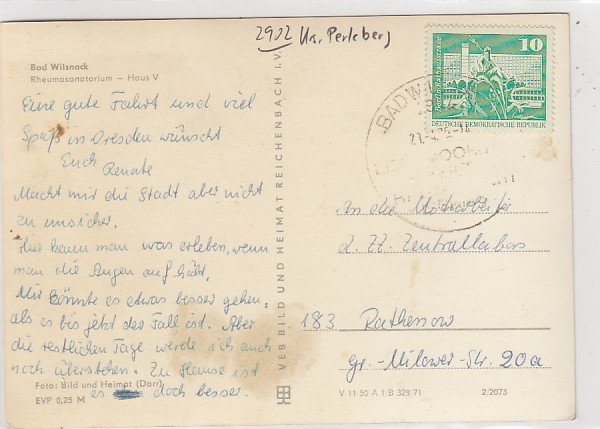 2902 Kr. Perleberg
Bad Wilsnack
Rheumasanatorium — Haus V
Eine gute Fahrt und viel
Spaß in Dresden wünscht
Euch
Renate
Macht mir die Stadt aber nicht
zu unsicher.
Hier kann man was erleben, wenn
man die Augen auf hält.
Mir könnte es etwas besser gehen,
als es bis jetzt der Fall ist. Aber
die restlichen Tage werde ich auch
noch überstehen. Zu Hause ist
es doch besser.
Foto: Bild und Heimat (Darr)
EVP 0,25 M
VEB BILD UND HEIMAT REICHENBACH I. V.
10
DEUTSCHE DEMOKRATISCHE REPUBLIK
BAD WIL
An die Mitarbeiter
d. ZZ. Zentrallabors
183 Rathenow
Gr.-Milower-Str. 20a
V 11 50 A 1 B 329/71 2/2073